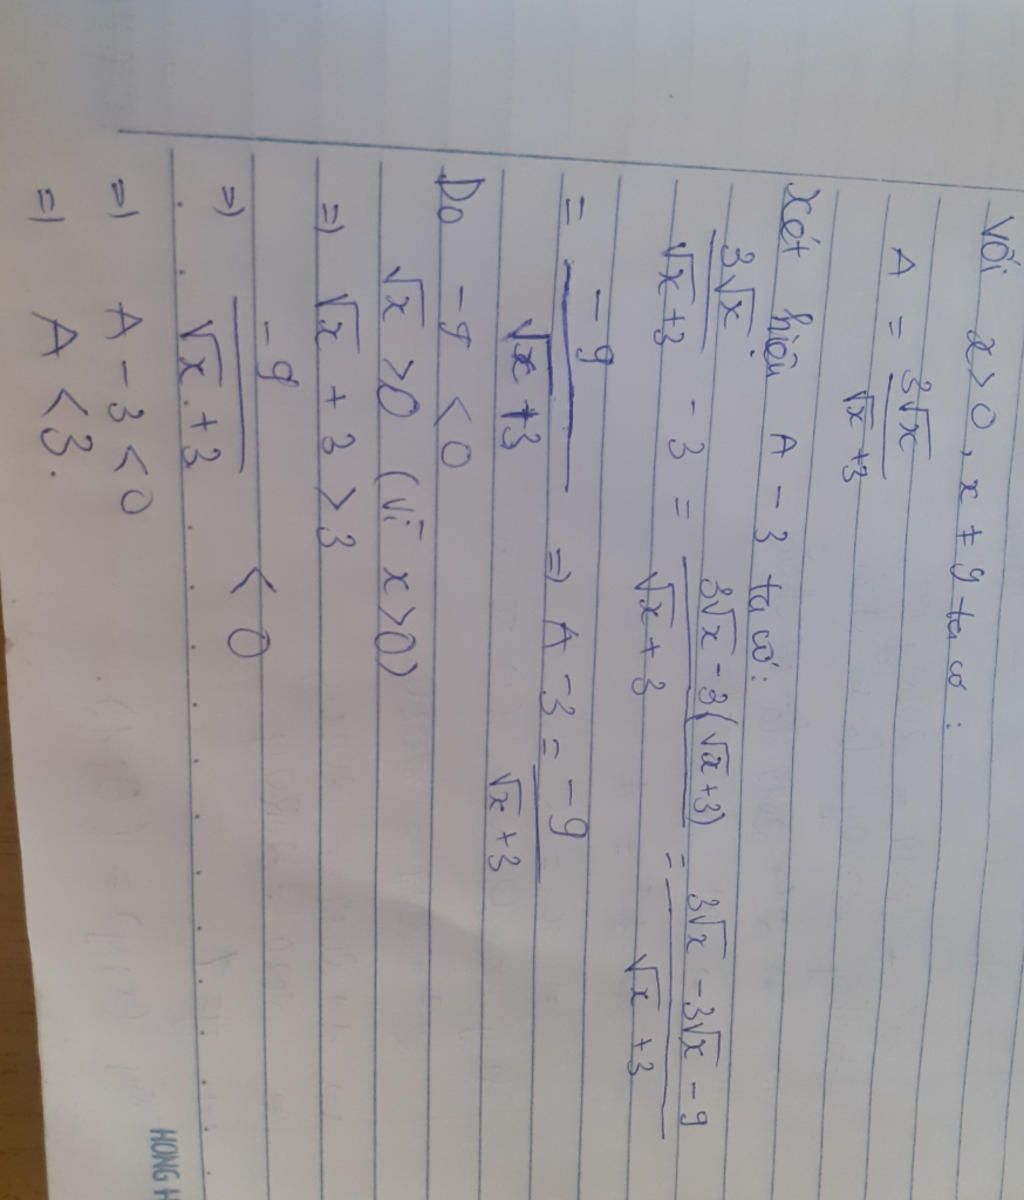 Với x > 0, x ≠ 9 ta có :
A = 3√x / √x + 3
Xét hiệu A - 3 ta có:
3√x / √x + 3 - 3 = 3√x - 3(√x + 3) / √x + 3 = 3√x - 3√x - 9 / √x + 3
= -9 / √x + 3 => A - 3 = -9 / √x + 3
Do -9 < 0
√x > 0 (vì x > 0)
=> √x + 3 > 3
=> -9 / √x + 3 < 0
=> A - 3 < 0
=> A < 3.
HONG H